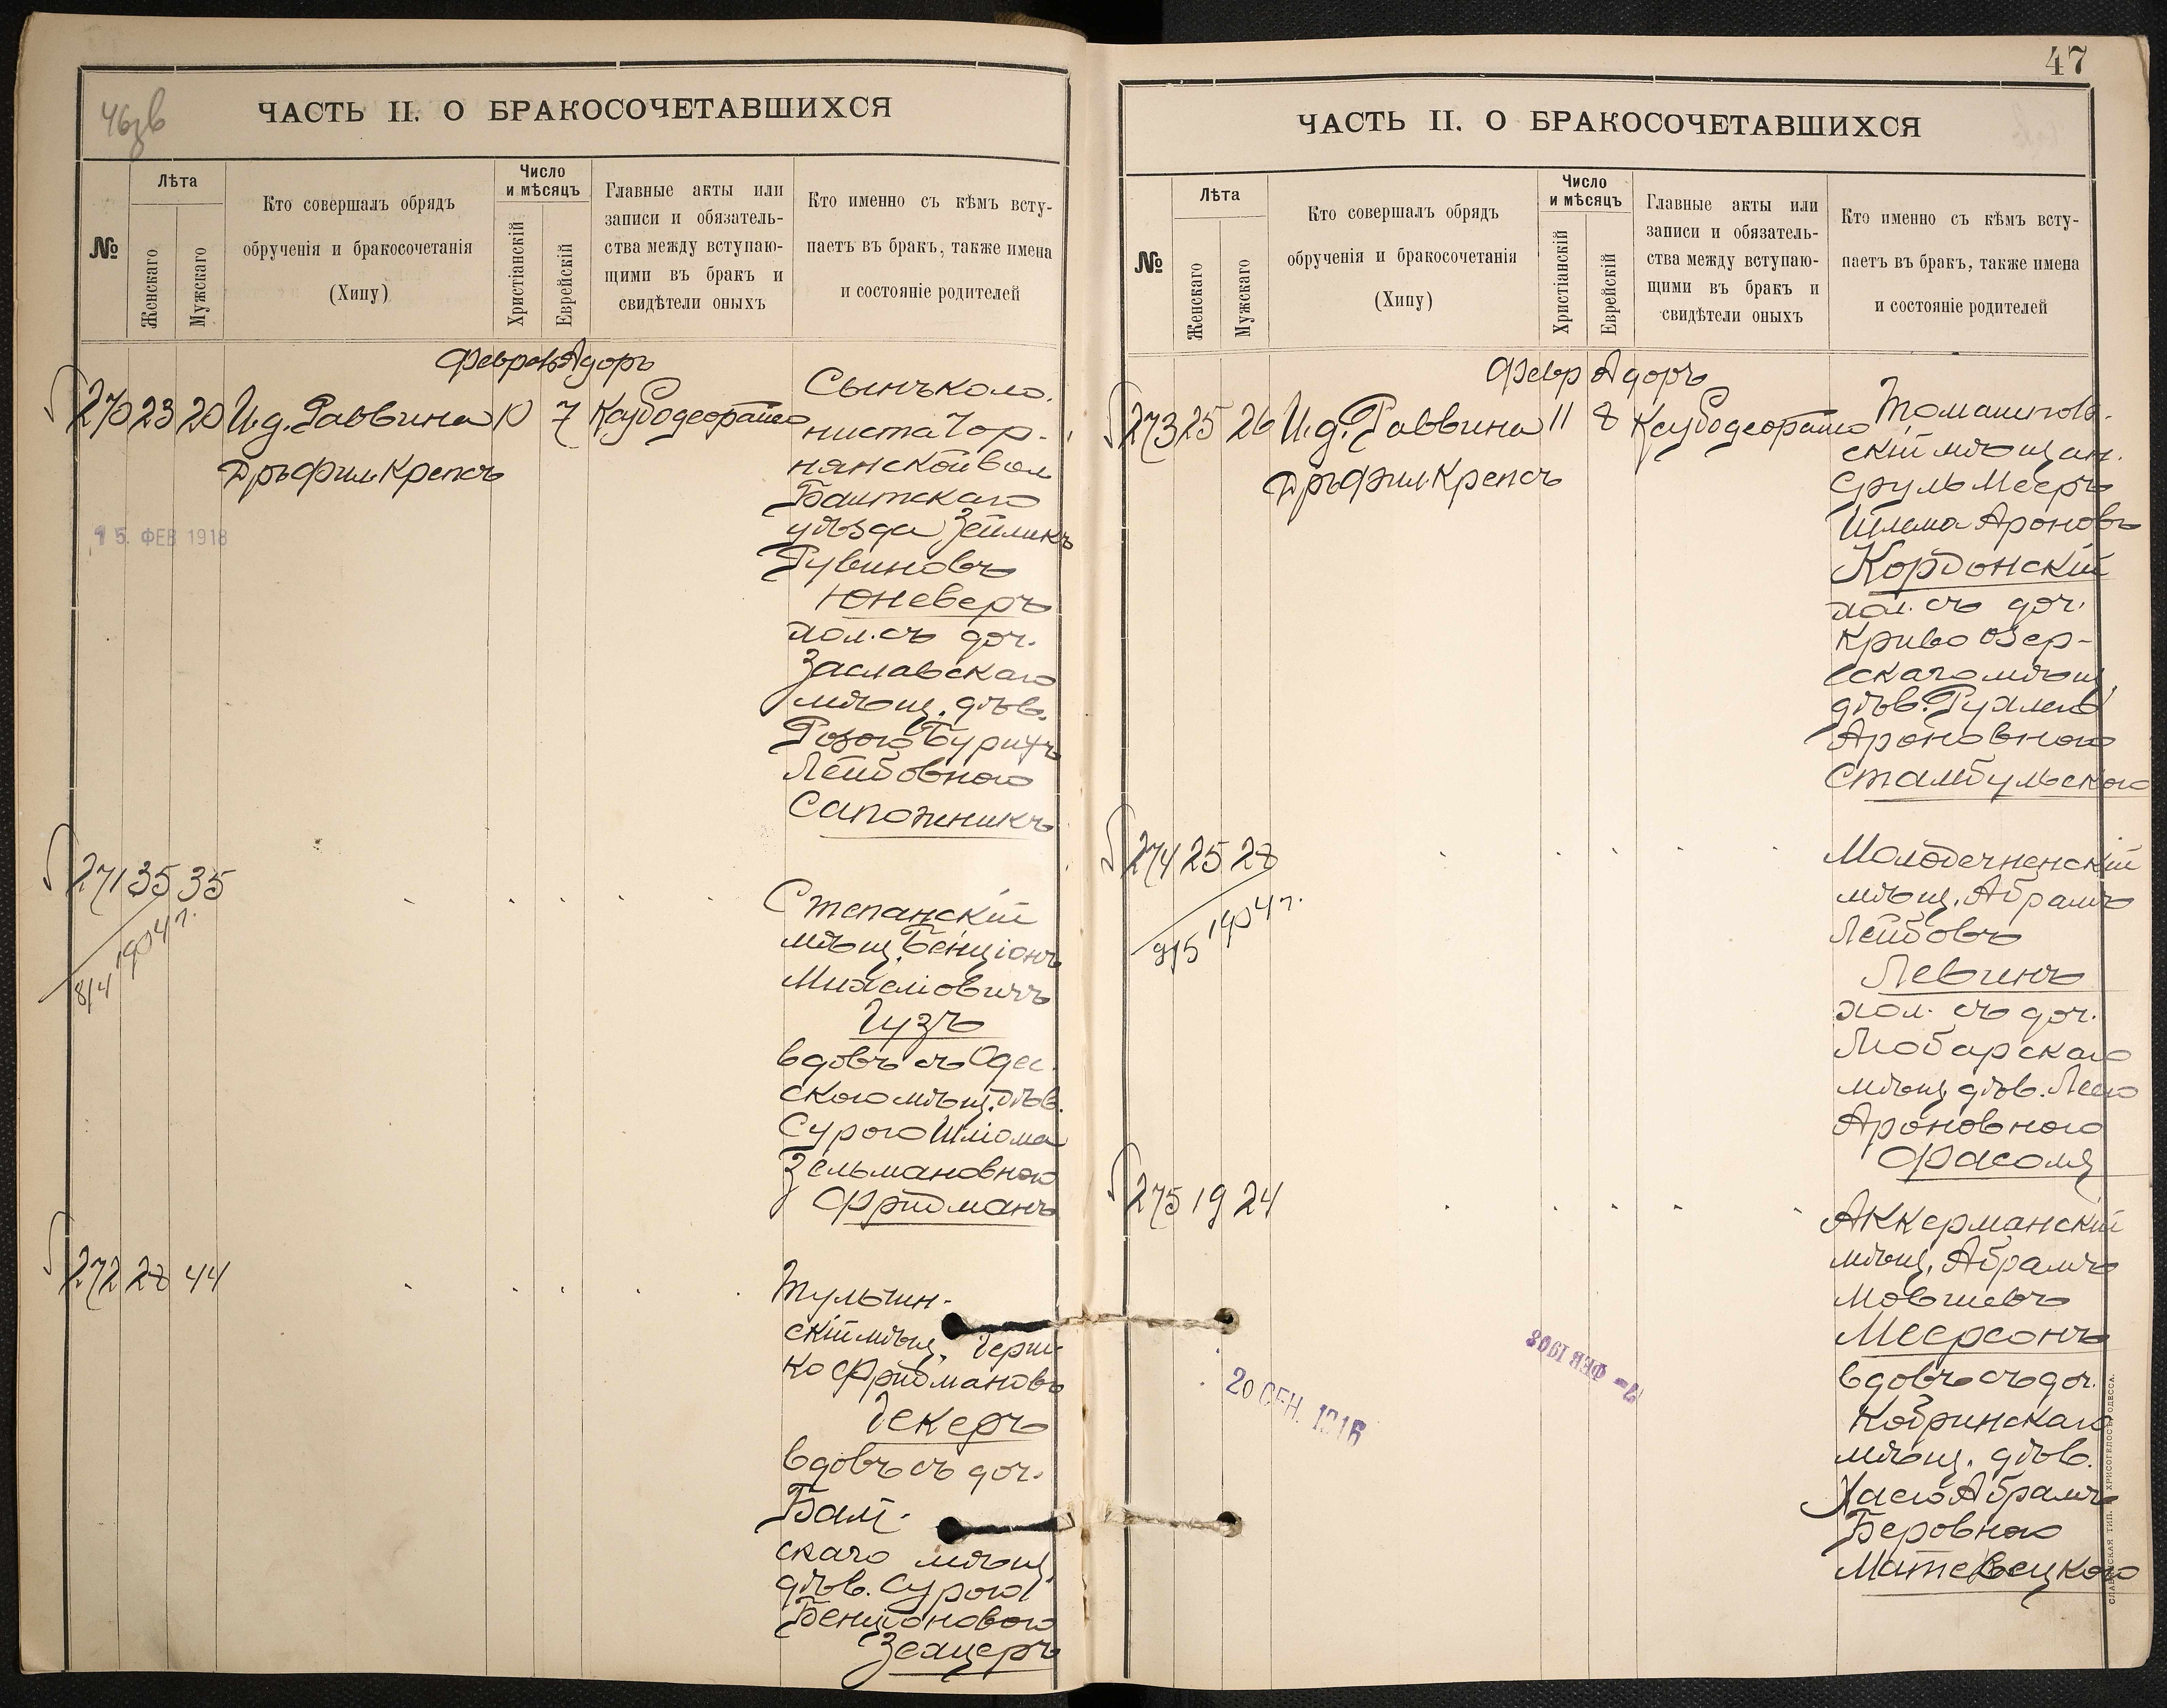 46зв
ЧАСТЬ II. О БРАКОСОЧЕТАВШИХСЯ
№
Лѣта
Женскаго
Мужскаго
Кто совершалъ обрядъ
обрученія и бракосочетанія
(Хипу)
Число
и мѣсяцъ
Христіанскій
Еврейскій
Главные акты или
записи и обязатель-
ства между вступаю-
щими въ бракъ и
свидѣтели оныхъ
Кто именно съ кѣмъ всту-
паетъ въ бракъ, также имена
и состояніе родителей
Февраль Адоръ
270 23 20 И.д. Раввина 10 7
Дръ Фил. Крепсъ
15. ФЕВ 1918
Сынъ коло-
ниста Чор-
нянской вол
Балтскаго
уѣзда Зейликъ
Рувиновъ
Юневеръ
хол. съ доч.
Заславскаго
мѣщ. дѣв.
Розою Бурихъ
Лейбовною
Сапожникъ
271 35 35
8/4 1904 г.
Степанскій
мѣщ. Бенціонъ
Михелiовичъ
Гузъ
вдовъ съ Одес.
скою мѣщ. дѣв.
Сурою Шліома
Зельмановною
Фридманъ
272 28 44
Тульчин-
скій мѣщ. Герш-
ко Фридмановъ
Декеръ
вдовъ съ доч.
Балт-
скаго мѣщ.
дѣв. Сурою
Бенціоновою
Зехцеръ
47
ЧАСТЬ II. О БРАКОСОЧЕТАВШИХСЯ
№
Лѣта
Женскаго
Мужскаго
Кто совершалъ обрядъ
обрученія и бракосочетанія
(Хипу)
Число
и мѣсяцъ
Христіанскій
Еврейскій
Главные акты или
записи и обязатель-
ства между вступаю-
щими въ бракъ и
свидѣтели оныхъ
Кто именно съ кѣмъ всту-
паетъ въ бракъ, также имена
и состояніе родителей
Февр Адоръ
273 25 26 И.д. Раввина 11 8
Дръ Фил. Крепсъ
Томашпов-
скій мѣщан.
Сруль Мееръ
Шлема Ароновъ
Кордонскій
хол. съ доч.
Криво Озер-
скаго мѣщ.
дѣв. Рухлею
Ароновною
Стамбульскою
274 25 28
9/5 1904 г.
Молодечненскій
мѣщ. Абрамъ
Лейбовъ
Левинъ
хол. съ доч.
Любарскаго
мѣщ. дѣв. Леею
Ароновною
Фасоля
275 19 24
Аккерманскій
мѣщ. Абрамъ
Мовшевъ
Меерсонъ
вдовъ съ доч.
Кобринскаго
мѣщ. дѣв.
Хасею Абрамъ
Беровною
Матевецкою
20 СЕН. 1916
ФЕВ 1908
СЛАВЯНСКАЯ ТИП. Н. ХРИСОГЕЛОСЪ, ОДЕССА.